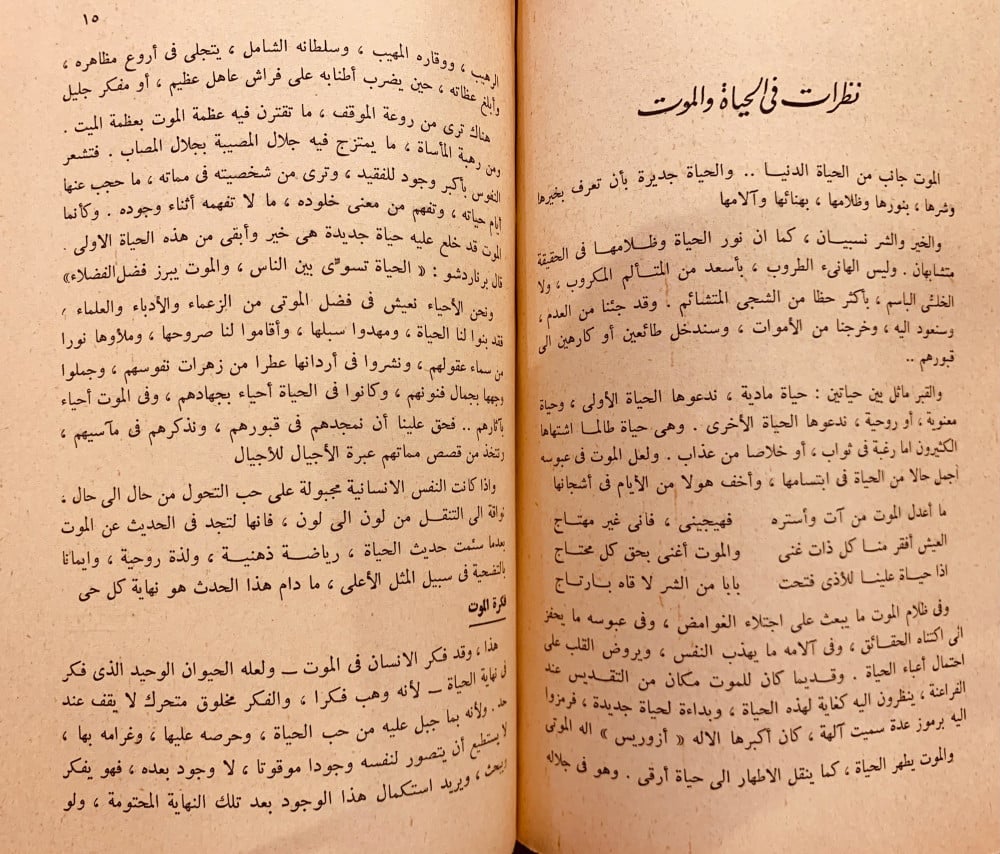 نظرات فى الحياة والموت
الموت جانب من الحياة الدنيـا .. والحياة جديرة بأن تعرف بخيرها
وشرها ، بنورها وظلامها ، بهنائها وآلامها
والخير والشر نسبيـان ، كما ان نور الحياة وظـلامهـا فى الحقيقة
متشابهان . وليس الهانىء الطروب ، بأسعد من المتـألم المكروب ، ولا
الخلىّ الباسم ، بأكثر حظا من الشجى المتشائم . وقد جئنا من العدم ،
وسنعود اليه ، وخرجنا من الأموات ، وسندخل طائعين أو كارهين الى
قبورهم ..
والقبر ماثل بين حياتين : حياة مادية ، ندعوها الحياة الأولى ، وحياة
معنوية ، أو روحية ، ندعوها الحياة الأخرى . وهى حياة طالمـا اشتهاها
الكثيرون اما رغبة فى ثواب ، أو خلاصا من عذاب . ولعل الموت فى عبوسه
أجمل حالا من الحياة فى ابتسامها ، وأخف هولا من الأيام فى أشجانها
ما أعدل الموت من آت وأستره فهيجينى ، فانى غير مهتـاج
العيش أفقر منـا كل ذات غنى والموت أغنى بحق كل محتـاج
اذا حيـاة علينـا للأذى فتحت بابا من الشر لاقاه بـارتـاج
وفى ظلام الموت ما يبعث على اجتلاء الغوامض ، وفى عبوسه ما يحفز
الى اكتناه الحقائق ، وفى آلامه ما يهذب النفس ، ويروض القلب على
احتمال أعباء الحياة . وقديمـا كان للموت مكان من التقديس عند
الفراعنة ، ينظرون اليه كغاية لهذه الحياة ، وبداءة لحياة جديدة ، فرمزوا
اليه برموز عدة سميت آلهة ، كان أكبرها الاله « أزوريس » اله الموتى
والموت يطهر الحياة ، كما ينقل الاطهار الى حياة أرقى . وهو فى جلاله
١٥
الرهيب ، ووقاره المهيب ، وسلطانه الشامل ، يتجلى فى أروع مظاهره ،
وأبلغ عظاته ، حين يضرب أطنابه على فراش عاهل عظيم ، أو مفكر جليل
هناك ترى من روعة الموقف ، ما تقترن فيه عظمة الموت بعظمة الميت .
ومن رهبة المأساة ، ما يمتزج فيه جلال المصيبة بجلال المصاب . فتشعر
النفوس بأكبر وجود للفقيد ، وترى من شخصيته فى مماته ، ما حجب عنها
أيام حياته ، وتفهم من معنى خلوده ، ما لا تفهمه أثناء وجوده . وكأنما
الموت قد خلع عليه حياة جديدة هى خير وأبقى من هذه الحياة الاولى .
قال برناردشو : « الحياة تسوّى بين الناس ، والموت يبرز فضل الفضلاء »
ونحن الأحياء نعيش فى فضل الموتى من الزعماء والأدباء والعلماء ،
فقد بنوا لنا الحياة ، ومهدوا سبلها ، وأقاموا لنا صروحها ، وملأوها نورا
من سماء عقولهم ، ونشروا فى أردانها عطرا من زهرات نفوسهم ، وجملوا
وجهها بجمال فنونهم ، وكانوا فى الحياة أحياء بجهادهم ، وفى الموت أحياء
بآثارهم .. فحق علينا أن نمجدهم فى قبورهم ، ونذكرهم فى مآسيهم ،
ونتخذ من قصص مماتهم عبرة الأجيال للأجيال
واذا كانت النفس الانسانية مجبولة على حب التحول من حال الى حال ،
تواقة الى التنقل من لون الى لون ، فانها لتجد فى الحديث عن الموت
بعدما سئمت حديث الحياة ، رياضة ذهنيـة ، ولذة روحية ، وايمانا
بالتضحية فى سبيل المثل الأعلى ، ما دام هذا الحدث هو نهاية كل حى
فكرة الموت
هذا ، وقد فكر الانسان فى الموت ــ ولعله الحيوان الوحيد الذى فكر
فى نهاية الحياة ــ لأنه وهب فكرا ، والفكر مخلوق متحرك لا يقف عند
حد . ولأنه بما جبل عليه من حب الحياة ، وحرصه عليها ، وغرامه بها ،
لا يستطيع أن يتصور لنفسه وجودا موقوتا ، لا وجود بعده ، فهو يفكر
ويبحث ، ويريد استكمال هذا الوجود بعد تلك النهاية المحتومة ، ولو